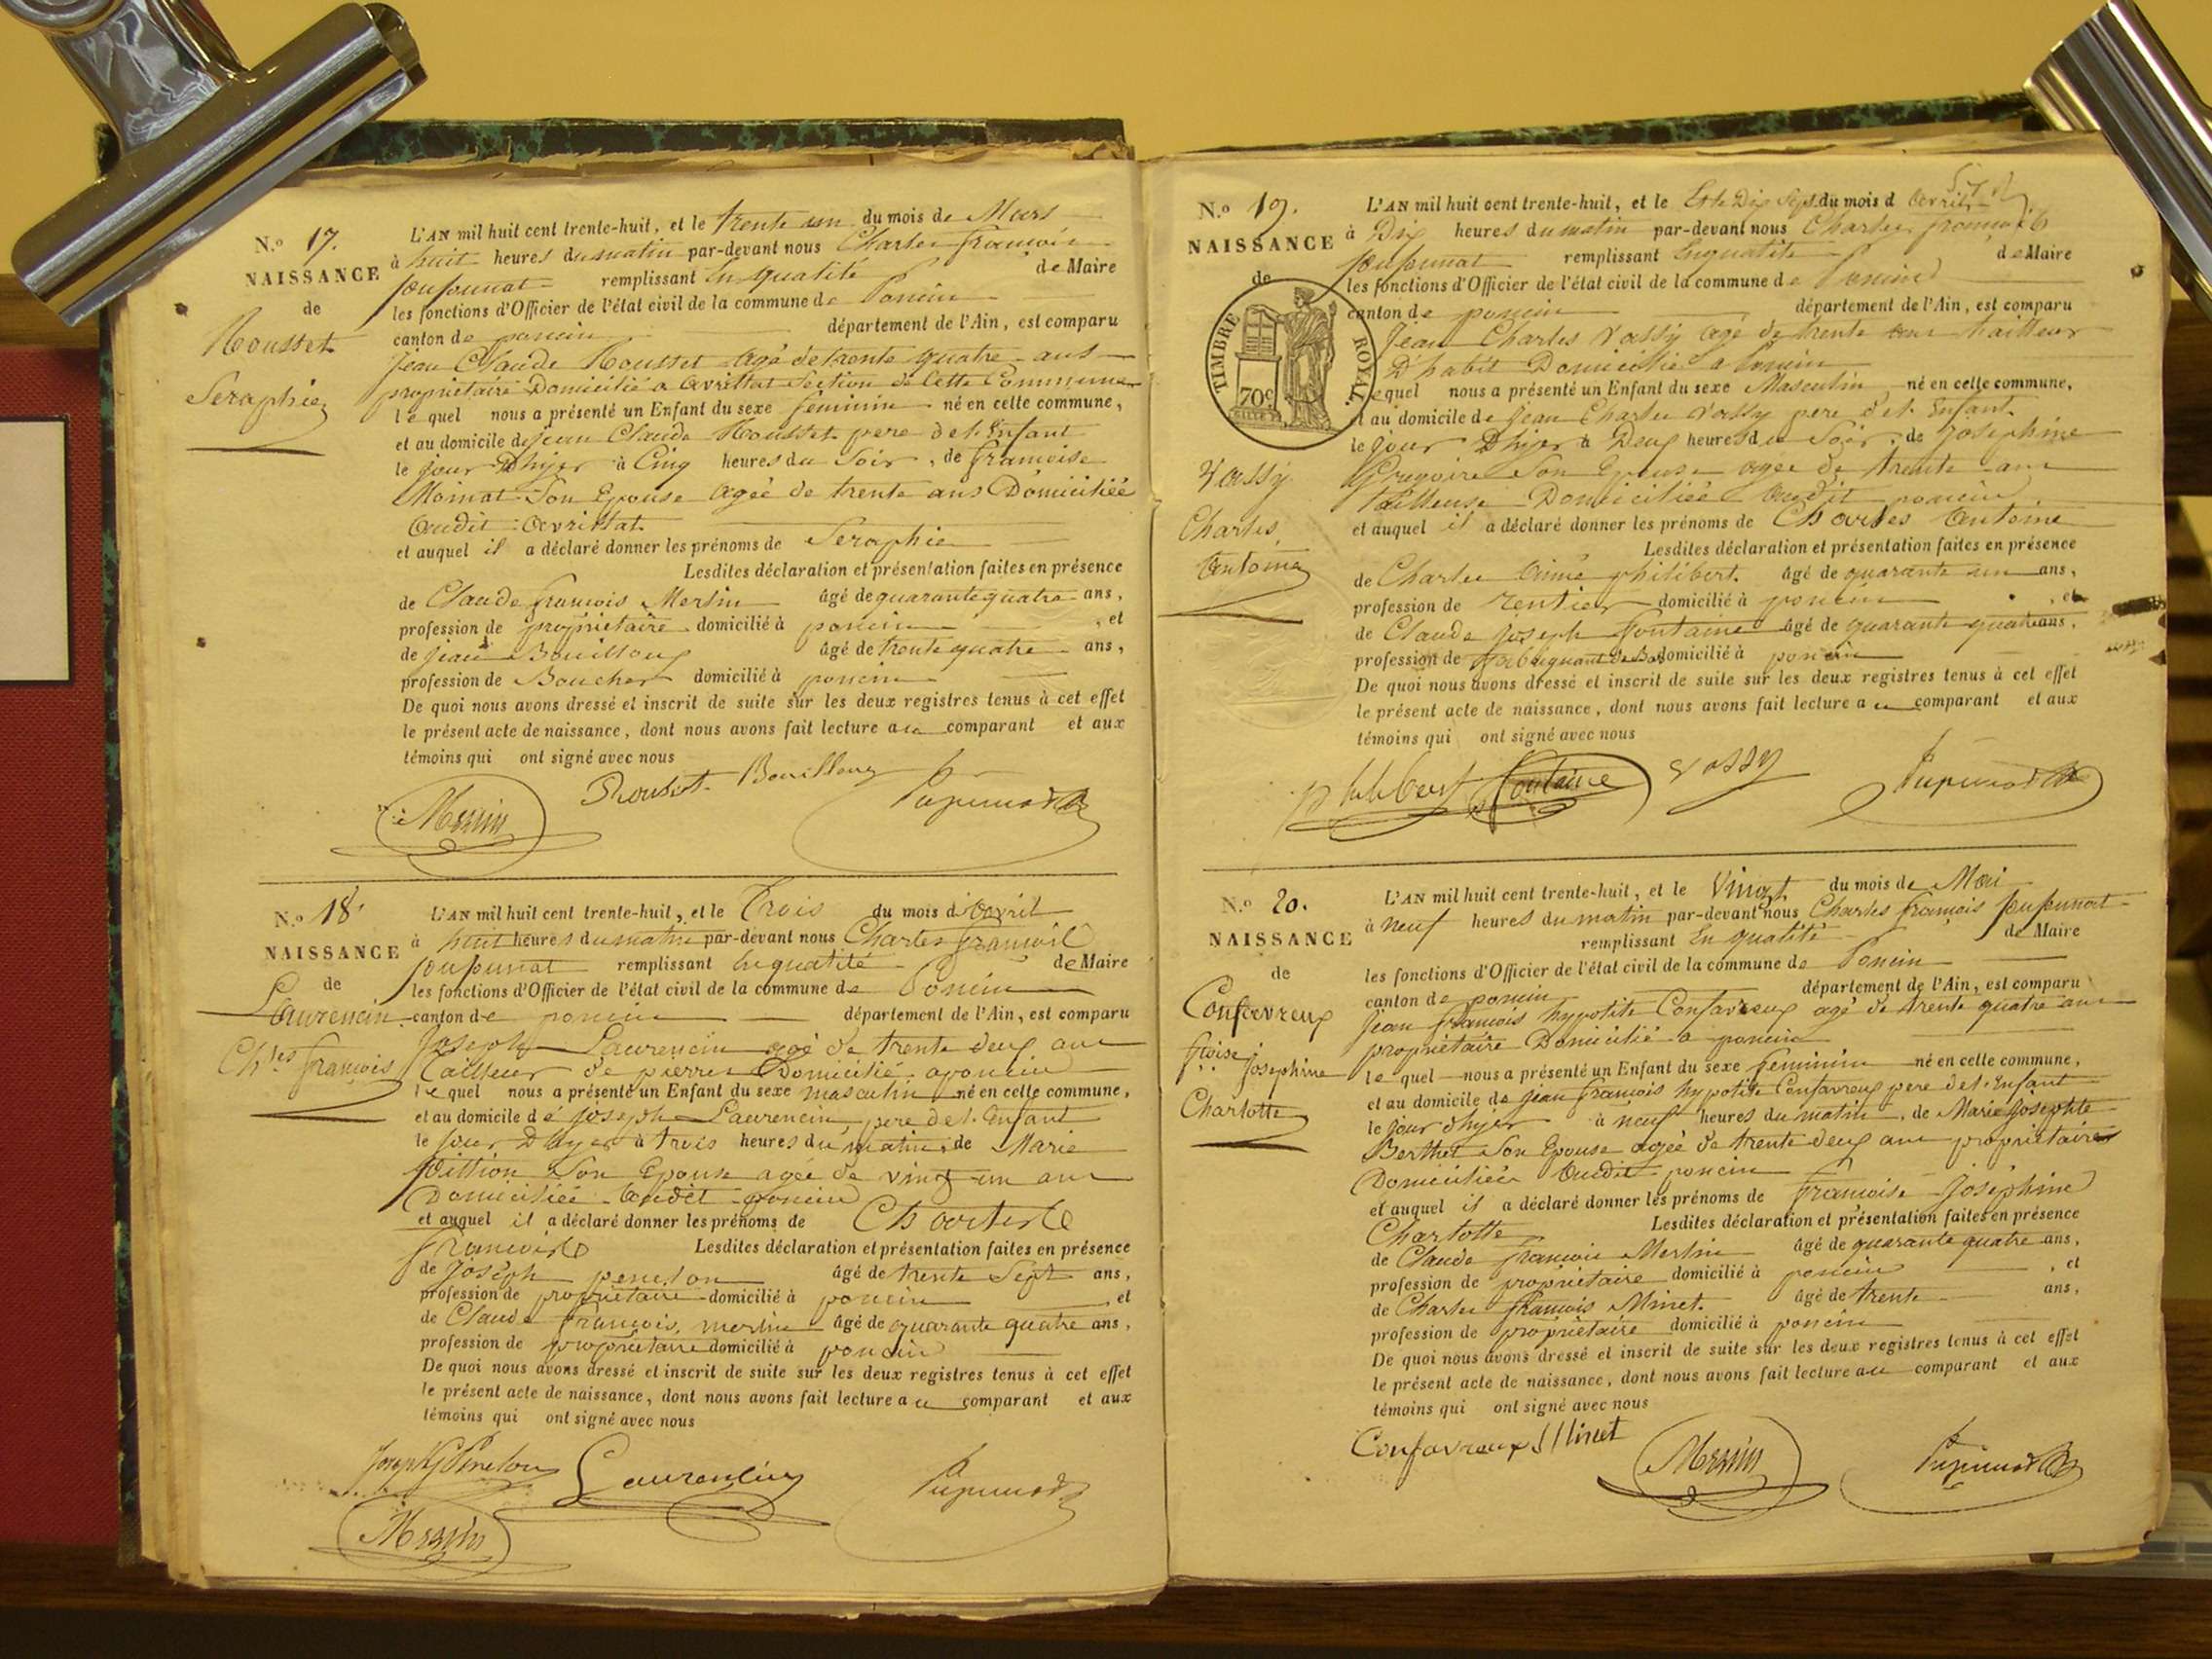 N.o 17.
NAISSANCE
de
Rousset
Seraphie
L'AN mil huit cent trente-huit, et le trente un du mois de Mars
à huit heures du matin par-devant nous Charles françois
pupunat remplissant En qualité de Maire
les fonctions d'Officier de l'état civil de la commune de Poncin
canton de poncin département de l'Ain, est comparu
Jean Claude Rousset agé de trente quatre ans
propriétaire Domicilié a avrillat Section de Cette Commune
le quel nous a présenté un Enfant du sexe feminin né en celle commune,
et au domicile de jean Claude Rousset pere de l'Enfant
le jour D'hyer à Cinq heures du Soir, de françoise
Moinat Son Epouse agée de trente ans Domiciliée
audit avrillat
et auquel il a déclaré donner les prénoms de Seraphie
Lesdites déclaration et présentation faites en présence
de Claude françois Merlin âgé de quarante quatre ans,
profession de propriétaire domicilié à poncin, et
de jean Bouilloux âgé de trente quatre ans,
profession de Boucher domicilié à poncin
De quoi nous avons dressé et inscrit de suite sur les deux registres tenus à cet effet
le présent acte de naissance, dont nous avons fait lecture au comparant et aux
témoins qui ont signé avec nous
Merlin Rousset Bouilloux Pupunat
N.o 18.
NAISSANCE
de
Laurencin
Ch.les françois
L'AN mil huit cent trente-huit, et le Trois du mois d'avril
à huit heures du matin par-devant nous Charles françois
pupunat remplissant En qualité de Maire
les fonctions d'Officier de l'état civil de la commune de Poncin
canton de poncin département de l'Ain, est comparu
Joseph Laurencin agé de trente deux ans
Tailleur de pierres Domicilié a poncin
le quel nous a présenté un Enfant du sexe masculin né en celle commune,
et au domicile de joseph Laurencin pere de l'Enfant
le jour D'hyer à trois heures du matin, de Marie
pittion Son Epouse agée de vingt un ans
Domiciliée audit poncin
et auquel il a déclaré donner les prénoms de Charles
françois Lesdites déclaration et présentation faites en présence
de joseph peneton âgé de trente Sept ans,
profession de propriétaire domicilié à poncin, et
de Claude françois merlin âgé de quarante quatre ans,
profession de propriétaire domicilié à poncin
De quoi nous avons dressé et inscrit de suite sur les deux registres tenus à cet effet
le présent acte de naissance, dont nous avons fait lecture au comparant et aux
témoins qui ont signé avec nous
Joseph Peneton Laurencin Pupunat
Merlin
N.o 19.
NAISSANCE
de
TIMBRE ROYAL.
70c
Vassy
Charles,
Antoine
L'AN mil huit cent trente-huit, et le Et le Dix Sept du mois d avril
à Dix heures du matin par-devant nous Charles françois
pupunat remplissant En qualité de Maire
les fonctions d'Officier de l'état civil de la commune de Poncin
canton de poncin département de l'Ain, est comparu
Jean Charles Vassy agé de trente ans tailleur
D'habit Domicilié a Poncin
lequel nous a présenté un Enfant du sexe Masculin né en celle commune,
et au domicile de Jean Charles Vassy pere de l'Enfant
le jour D'hyer à Deux heures du Soir, de Josephine
Gregoire Son Epouse agée de trente ans
tailleuse Domiciliée audit poncin
et auquel il a déclaré donner les prénoms de Charles antoine
Lesdites déclaration et présentation faites en présence
de Charles aimé philibert âgé de quarante un ans,
profession de rentier domicilié à poncin, et
de Claude joseph fontaine âgé de quarante quatre ans,
profession de domicilié à poncin
De quoi nous avons dressé et inscrit de suite sur les deux registres tenus à cet effet
le présent acte de naissance, dont nous avons fait lecture au comparant et aux
témoins qui ont signé avec nous
Philibert fontaine Vassy Pupunat
N.o 20.
NAISSANCE
de
Confavreux
f.çoise Josephine
Charlotte
L'AN mil huit cent trente-huit, et le Vingt du mois de Mai
à neuf heures du matin par-devant nous Charles françois pupunat
remplissant En qualité de Maire
les fonctions d'Officier de l'état civil de la commune de Poncin
canton de poncin département de l'Ain, est comparu
Jean françois hypolite Confavreux agé de trente quatre ans
propriétaire Domicilié a poncin
le quel nous a présenté un Enfant du sexe feminin né en celle commune,
et au domicile de jean françois hypolite Confavreux pere de l'Enfant
le jour d'hyer à neuf heures du matin, de Marie Josephte
Berthet Son Epouse agée de trente deux ans propriétaire
Domiciliée audit poncin
et auquel il a déclaré donner les prénoms de françoise Joséphine
Charlotte Lesdites déclaration et présentation faites en présence
de Claude françois Merlin âgé de quarante quatre ans,
profession de propriétaire domicilié à poncin, et
de Charles françois Minet âgé de trente ans,
profession de propriétaire domicilié à poncin
De quoi nous avons dressé et inscrit de suite sur les deux registres tenus à cet effet
le présent acte de naissance, dont nous avons fait lecture au comparant et aux
témoins qui ont signé avec nous
Confavreux Minet Merlin Pupunat